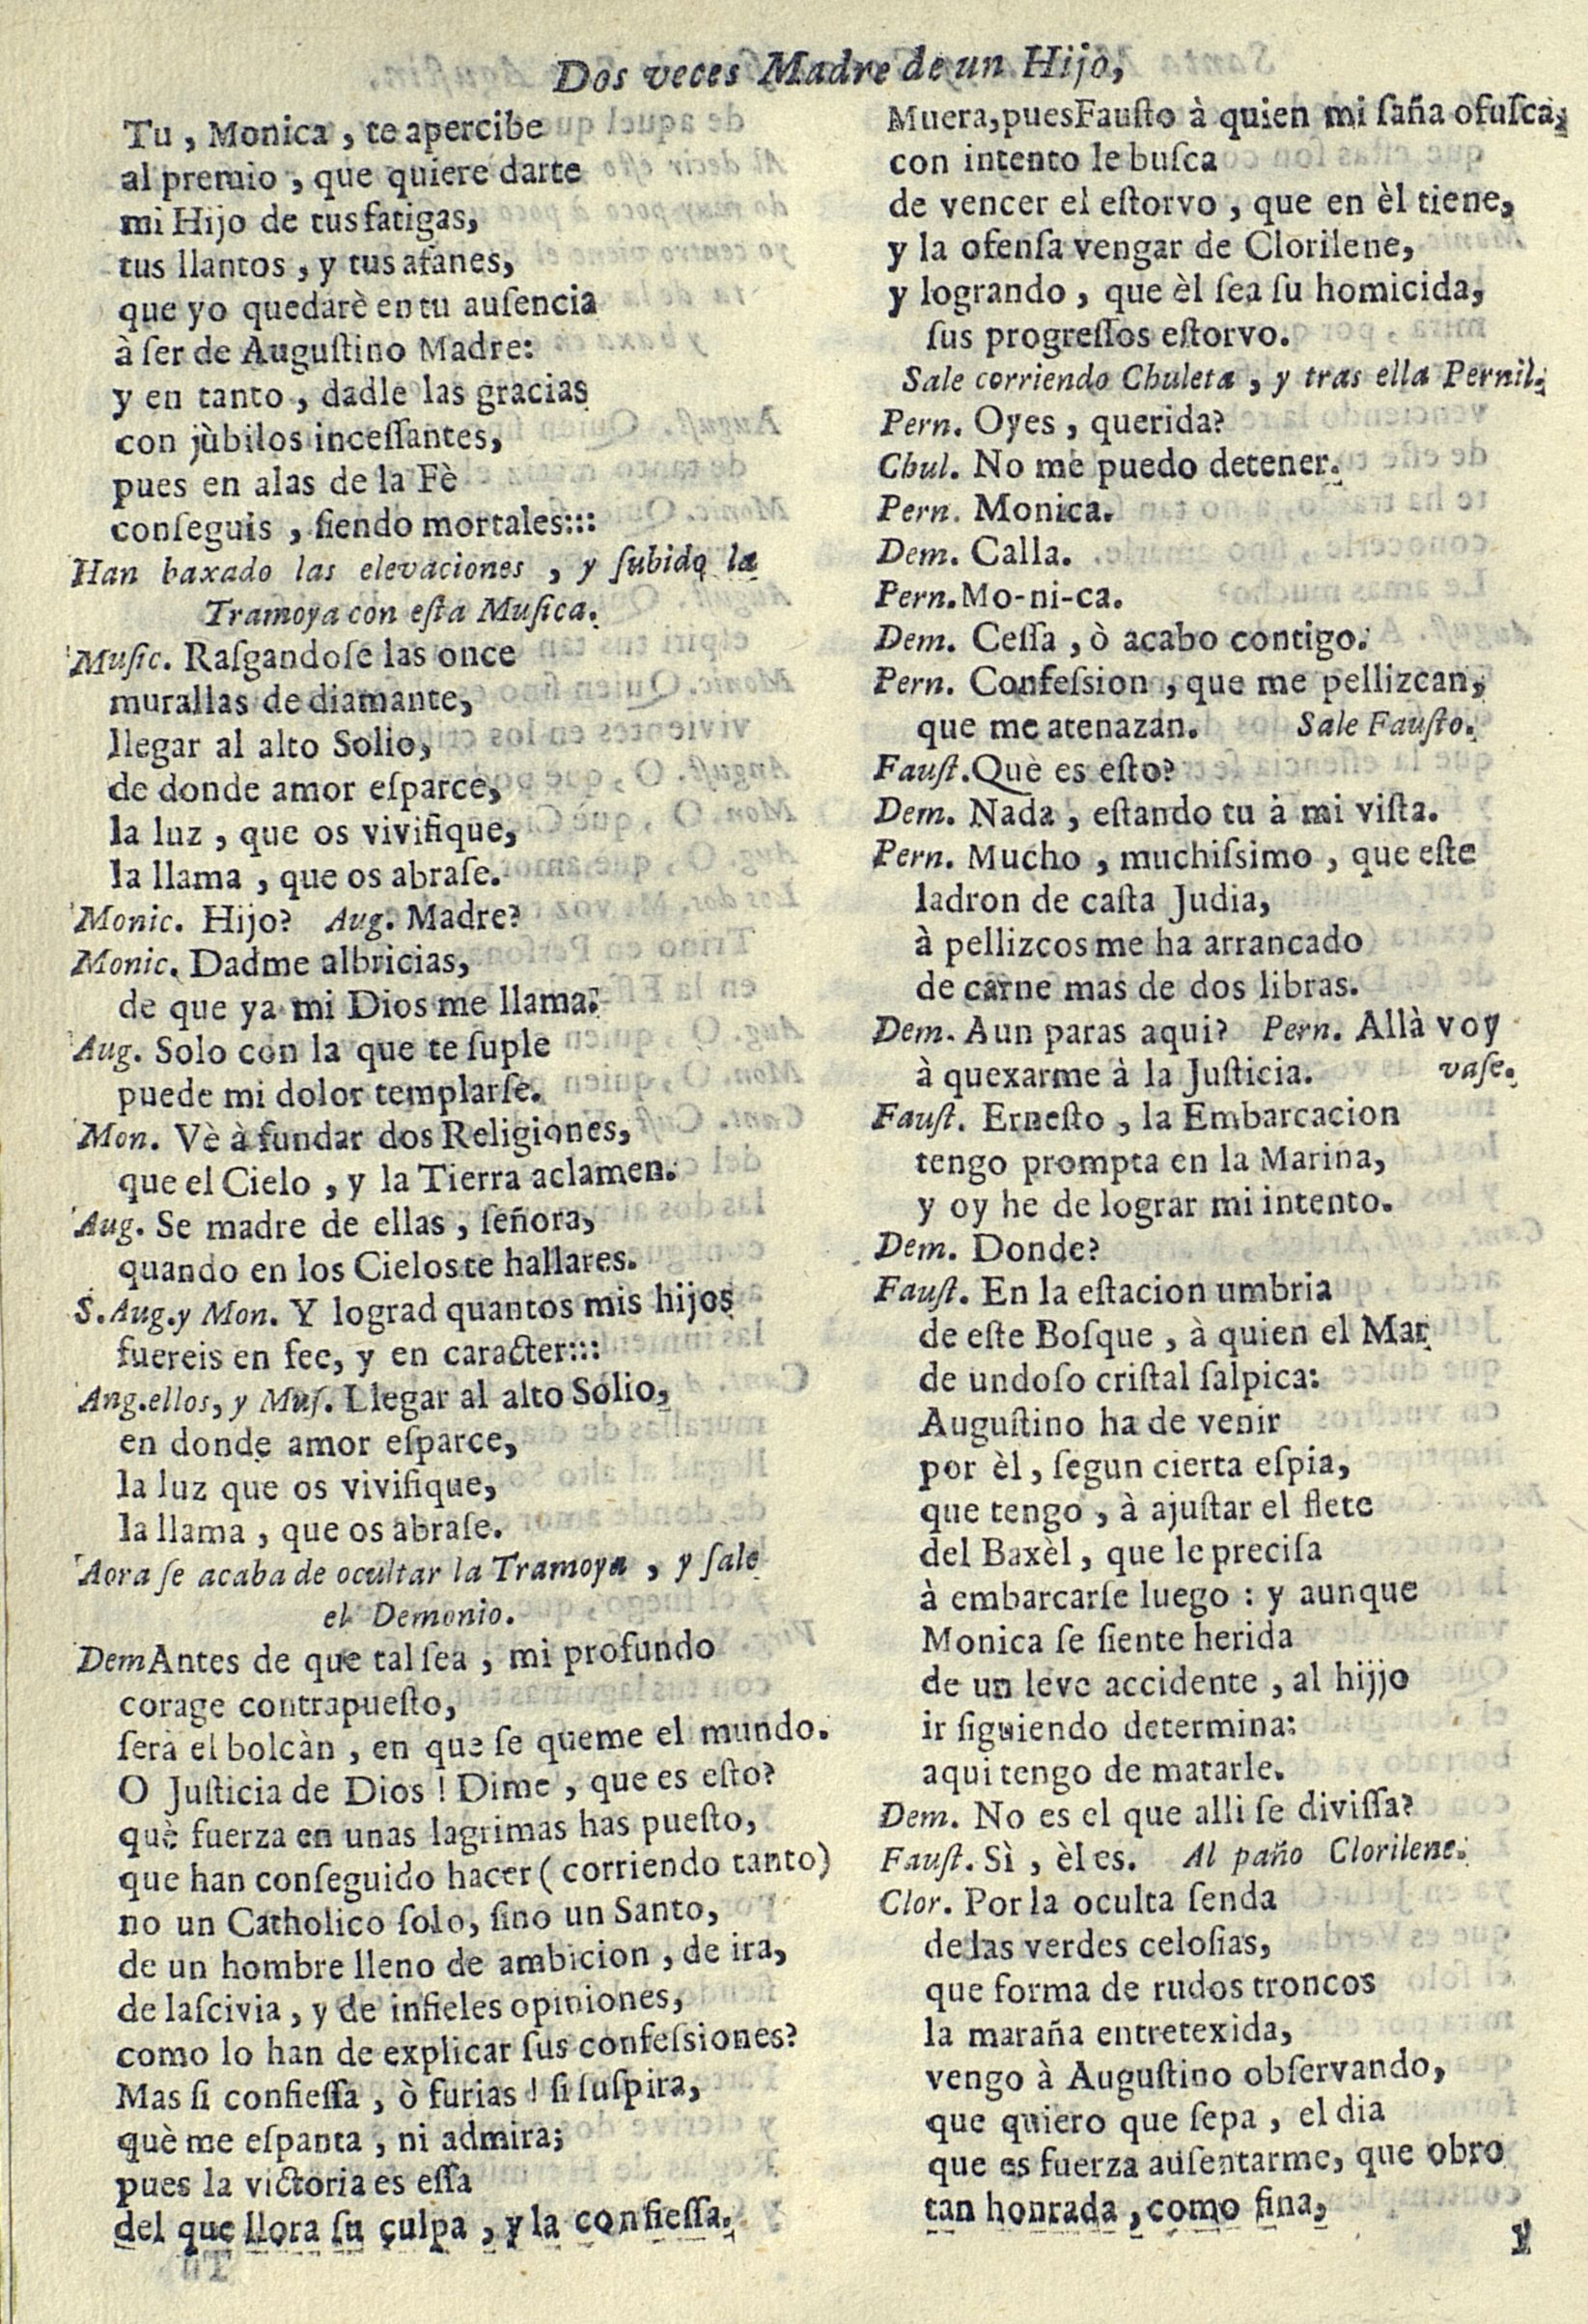 Dos veces Madre de un Hijo,
Tu, Monica, te apercibe
al premio, que quiere darte
mi Hijo de tus fatigas,
tus llantos, y tus afanes,
que yo quedarè en tu auſencia
à ſer de Auguſtino Madre:
y en tanto, dadle las gracias
con jùbilos inceſſantes,
pues en alas de la Fè
conſeguis, ſiendo mortales:::
Han baxado las elevaciones, y ſubido la
Tramoya con eſta Muſica.
Muſic. Raſgandoſe las once
murallas de diamante,
llegar al alto Solio,
de donde amor eſparce,
la luz, que os vivifique,
la llama, que os abraſe.
Monic. Hijo? Aug. Madre?
Monic. Dadme albricias,
de que ya mi Dios me llama.
Aug. Solo con la que te ſuple
puede mi dolor templarſe.
Mon. Vè à fundar dos Religiones,
que el Cielo, y la Tierra aclamen.
Aug. Se madre de ellas, ſeñora,
quando en los Cielos te hallares.
S. Aug. y Mon. Y lograd quantos mis hijos
fuereis en fee, y en caracter:::
Ang. ellos, y Muſ. Llegar al alto Solio,
en donde amor eſparce,
la luz que os vivifique,
la llama, que os abraſe.
Aora ſe acaba de ocultar la Tramoya, y ſale
el Demonio.
Dem Antes de que tal ſea, mi profundo
corage contrapueſto,
ſerà el bolcàn, en que ſe queme el mundo.
O Juſticia de Dios! Dime, que es eſto?
què fuerza en unas lagrimas has pueſto,
que han conſeguido hacer (corriendo tanto)
no un Catholico ſolo, ſino un Santo,
de un hombre lleno de ambicion, de ira,
de laſcivia, y de infieles opiniones,
como lo han de explicar ſus confeſsiones?
Mas ſi confieſſa, ò furias! ſi ſuſpira,
què me eſpanta, ni admira;
pues la victoria es eſſa
del que llora ſu culpa, y la confieſſa.
Muera, pues Fauſto à quien mi ſaña ofuſca,
con intento le buſca
de vencer el eſtorvo, que en èl tiene,
y la ofenſa vengar de Clorilene,
y logrando, que èl ſea ſu homicida,
ſus progreſſos eſtorvo.
Sale corriendo Chuleta, y tras ella Pernil.
Pern. Oyes, querida?
Chul. No me puedo detener.
Pern. Monica.
Dem. Calla.
Pern. Mo-ni-ca.
Dem. Ceſſa, ò acabo contigo.
Pern. Confeſsion, que me pellizcan,
que me atenazan. Sale Fauſto.
Fauſt. Què es eſto?
Dem. Nada, eſtando tu à mi viſta.
Pern. Mucho, muchiſsimo, que eſte
ladron de caſta Judia,
à pellizcos me ha arrancado
de carne mas de dos libras.
Dem. Aun paras aqui? Pern. Allà voy
à quexarme à la Juſticia. vaſe.
Fauſt. Erneſto, la Embarcacion
tengo prompta en la Marina,
y oy he de lograr mi intento.
Dem. Donde?
Fauſt. En la eſtacion umbria
de eſte Boſque, à quien el Mar
de undoſo criſtal ſalpica:
Auguſtino ha de venir
por èl, ſegun cierta eſpia,
que tengo, à ajuſtar el flete
del Baxèl, que le preciſa
à embarcarſe luego: y aunque
Monica ſe ſiente herida
de un leve accidente, al hijjo
ir ſiguiendo determina:
aqui tengo de matarle.
Dem. No es el que alli ſe diviſſa?
Fauſt. Sì, èl es. Al paño Clorilene.
Clor. Por la oculta ſenda
de las verdes celoſias,
que forma de rudos troncos
la maraña entretexida,
vengo à Auguſtino obſervando,
que quiero que ſepa, el dia
que es fuerza auſentarme, que obro
tan honrada, como fina,
y